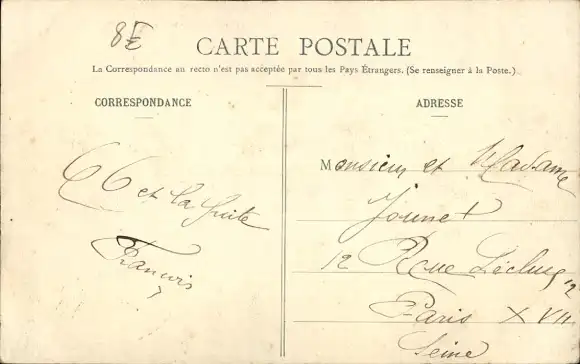 8E
CARTE POSTALE
La Correspondance au recto n'est pas acceptée par tous les Pays Étrangers. (Se renseigner à la Poste.)
CORRESPONDANCE
et la suite
Francis
ADRESSE
Monsieur et Madame
Jounet
12 Rue Lécluse 12
Paris XVII
Seine